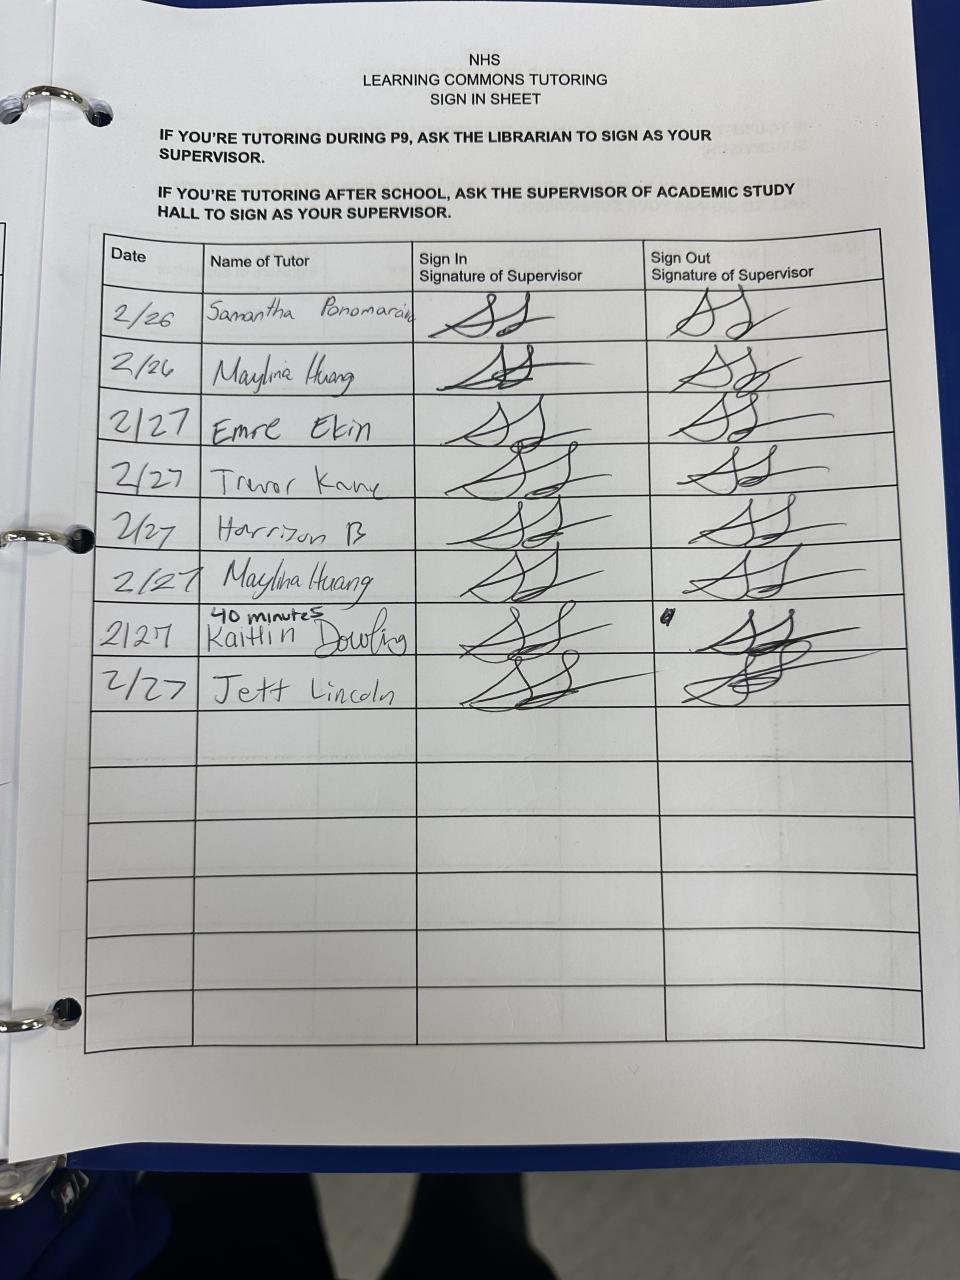 NHS
LEARNING COMMONS TUTORING
SIGN IN SHEET
IF YOU'RE TUTORING DURING P9, ASK THE LIBRARIAN TO SIGN AS YOUR
SUPERVISOR.
IF YOU'RE TUTORING AFTER SCHOOL, ASK THE SUPERVISOR OF ACADEMIC STUDY
HALL TO SIGN AS YOUR SUPERVISOR.
Date Name of Tutor Sign In Signature of Supervisor Sign Out Signature of Supervisor
2/26 Samantha
2/26 Maylina Huang
2/27 Emre Ekin
2/27 Trevor Kane
2/27 Harrison B
2/27 Maylina Huang
40 minutes
2/27 Kaitlin Dowling
2/27 Jett Lincoln